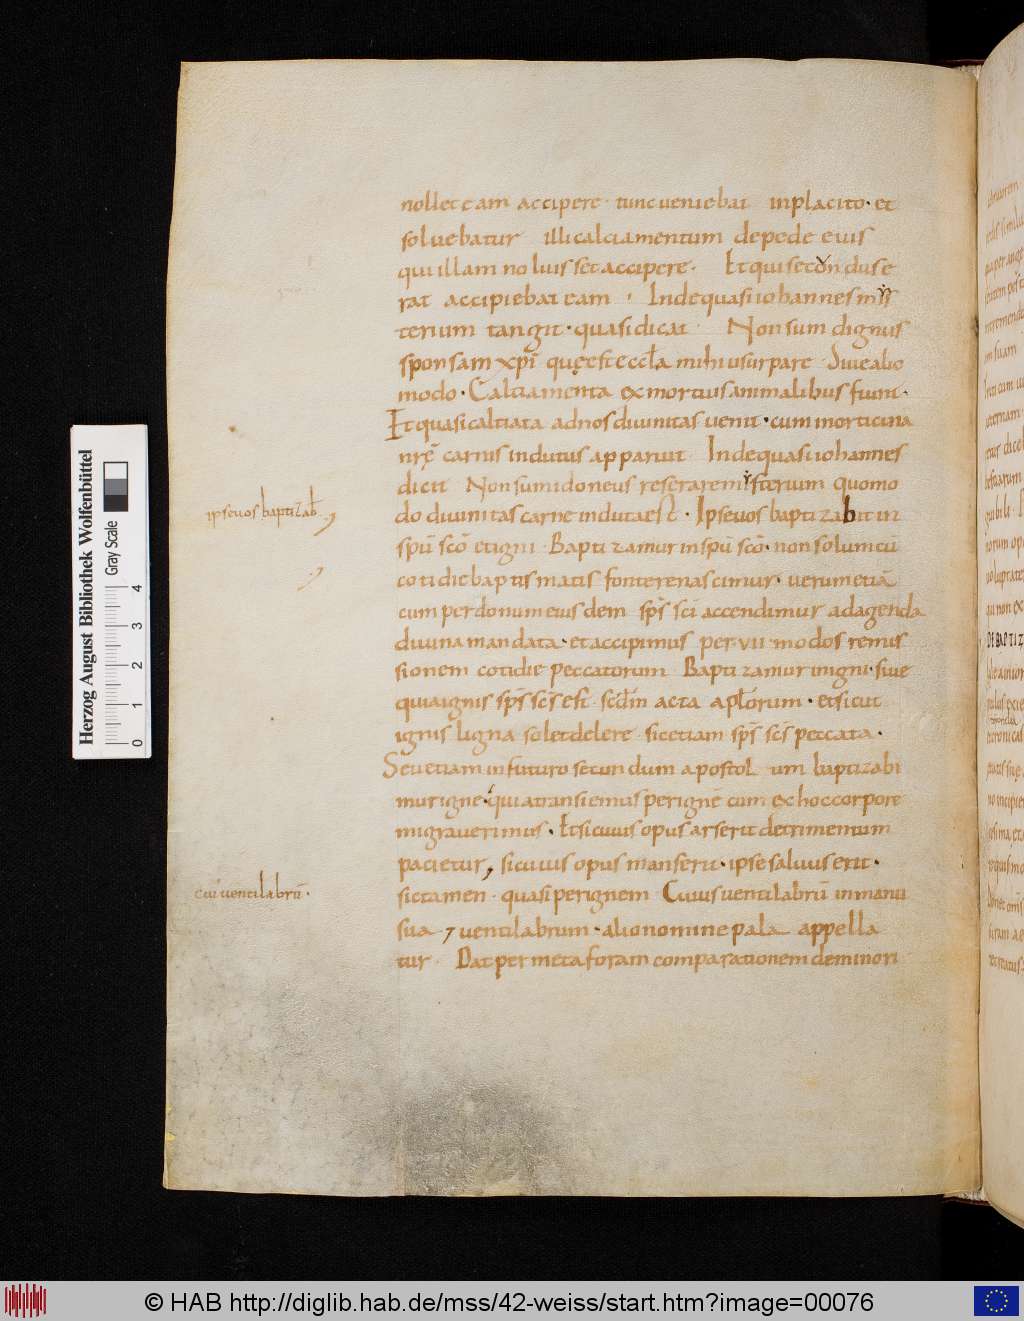 nollet eam accipere · tunc veniebat in placito · et
solvebatur illi calciamentum de pede eius
qui illam noluisset accipere · Et qui secundus e
rat accipiebat eam · Inde quasi iohannes mẏs
terium tangit · quasi dicat · Non sum dignus
sponsam xpī quę est eccła mihi usurpare · Sive alio
modo · Calciamenta ex mortuis animalibus fiunt ·
Et quasi calciata ad nos divinitas venit · cum morticina
nrę̄ carnis indutus apparuit Inde quasi iohannes
dicit Non sum idoneus reserare mẏsterium quomo
do divinitas carne induta est · Ipse vos baptizabit in
spū scō et igni · Baptizamur in spū scō · non solum cū
cotidie baptismatis fonte renascimur · verum etiā
cum per donum eiusdem sps̄ sci accendimur ad agenda
divina mandata · et accipimus per · vii · modos remis
sionem cotidie peccatorum Baptizamur in igni · sive
quia ignis sps̄ scs̄ est · scd̄m acta apłorum · et sicut
ignis ligna solet delere · sic etiam sps̄ scs̄ peccata ·
Seu etiam in futuro secundum apostolum baptizabi
mur igne · qui a transiemus per ignē cum ex hoc corpore
migraverimus · Et si cuius opus arserit detrimentum
pacietur, si cuius opus manserit · ipse salvus erit ·
sic tamen · quasi per ignem Cuius ventilabrū in manu
sua 7 ventilabrum · alio nomine pala appella
tur · Dat per metaforam comparationem de minori
ipse vos baptizab
cui' ventilabrū ·
Herzog August Bibliothek Wolfenbüttel
Gray Scale
0 1 2 3 4
© HAB http://diglib.hab.de/mss/42-weiss/start.htm?image=00076